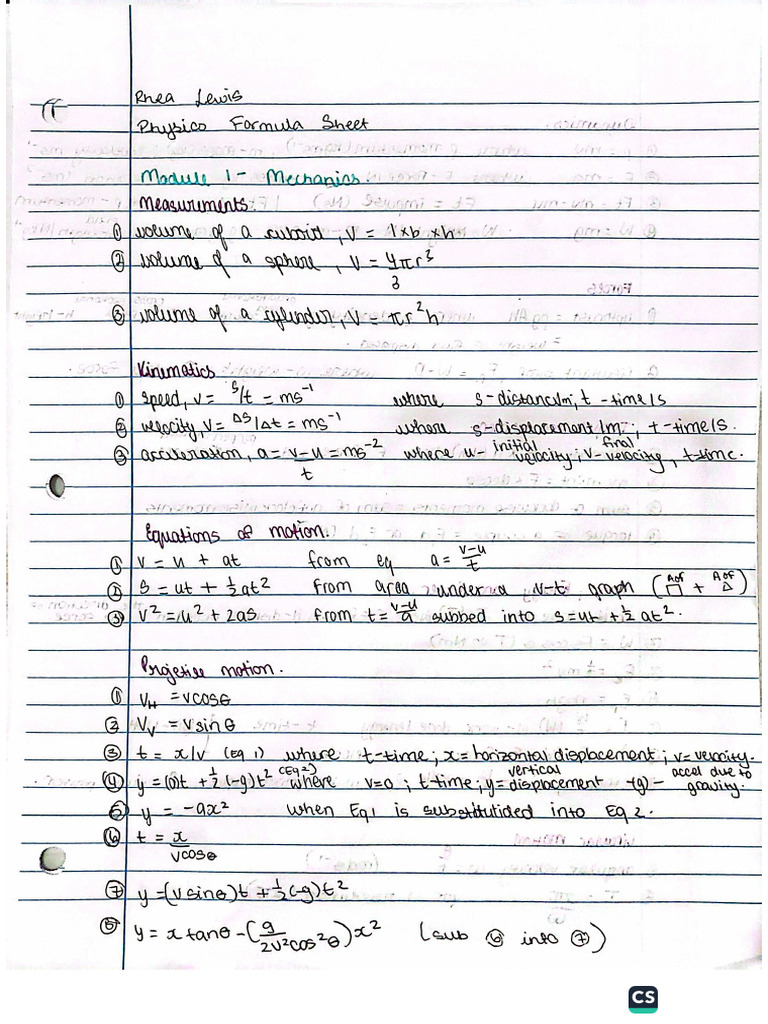 Rhea Lewis
Physico Formula Sheet
Module 1 - Mechanics
Measurements:
① volume of a cuboid, V = l × b × h
② volume of a sphere, V = 4πr³/3
③ volume of a cylinder, V = πr²h
Kinematics
① speed, v = s/t = ms⁻¹ where s - distance/m, t - time/s
② velocity, v = Δs/Δt = ms⁻¹ where s - displacement/m, t - time/s.
③ acceleration, a = v-u/t = ms⁻² where u - initial velocity, v - final velocity, t - time.
Equations of motion.
① v = u + at from eq a = v-u/t
② s = ut + ½at² from area under a v-t graph (A of □ + A of △)
③ v² = u² + 2as from t = v-u/a subbed into s = ut + ½at².
Projectile motion.
① V_H = vcosθ
② V_V = vsinθ
③ t = x/v (Eq 1) where t - time; x = horizontal displacement; v = velocity.
④ y = (0)t + ½(-g)t² (Eq 2) where v=0; t - time; y = vertical displacement -(g) - accel due to gravity.
⑤ y = -ax² when Eq 1 is substitutided into Eq 2.
⑥ t = x/vcosθ
⑦ y = (vsinθ)t + ½(-g)t²
⑧ y = xtanθ - (g/2v²cos²θ)x² (sub ⑥ into ⑦)
CS